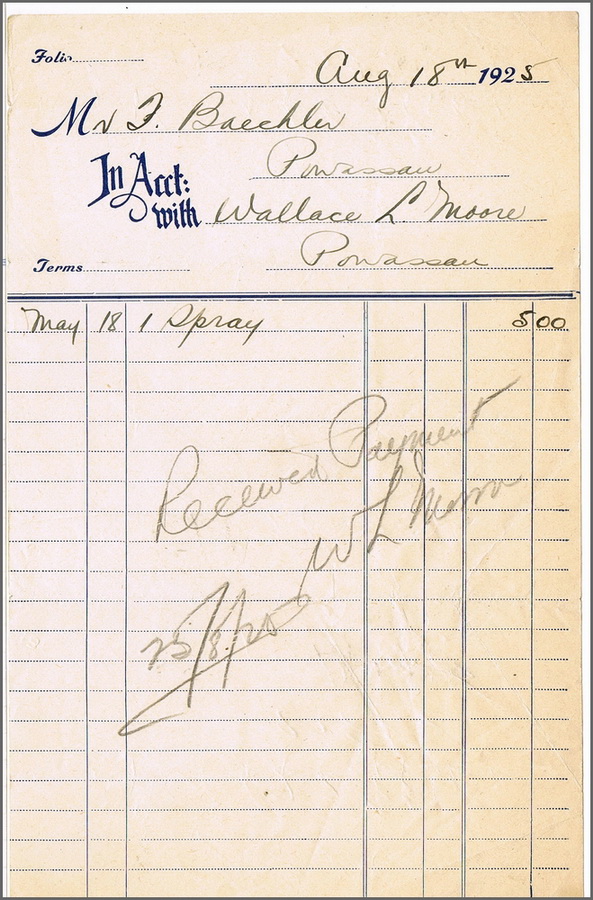 Folio
Aug 18th 1925
Mr F. Baechler
Powassan
In Acct: with Wallace L Moore
Powassan
Terms
May 18 1 Spray 5 00
Received Payment
W L Moore
25/8/25